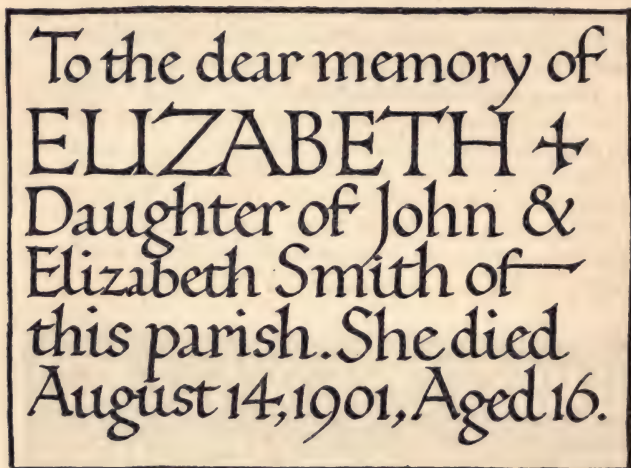 To the dear memory of
ELIZABETH +
Daughter of John &
Elizabeth Smith of
this parish. She died
August 14, 1901, Aged 16.